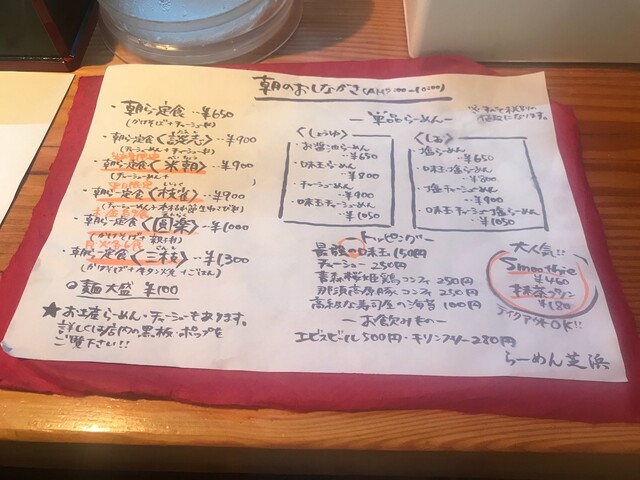 朝のおしながき
・朝らー定食 ‥¥650
(かけそば+チャーシュー飯)
・朝らー定食〈談志〉‥¥900
(チャーシューめん+チャーシュー飯)
・朝らー定食〈米朝〉‥¥900
・朝らー定食〈枝雀〉‥¥900
・朝らー定食〈圓楽〉‥¥1000
・朝らー定食〈三枝〉‥¥1300
(かけそば+牛タン焼+ごはん)
◎麺大盛 ¥100
★お土産らーめん・チャーシューもあります。
詳しくは店内の黒板・ポップを
ご覧下さい!!
ー単品らーめんー
〈しょうゆ〉
・お醤油らーめん
‥¥650
・味玉らーめん
‥¥800
・チャーシューめん
‥¥900
・味玉チャーシューめん
‥¥1050
〈しお〉
・塩らーめん
‥¥650
・味玉塩らーめん
‥¥800
・塩チャーシューめん
‥¥900
・味玉チャーシュー塩らーめん
‥¥1050
ートッピングー
最強の味玉 150円
チャーシュー 250円
青森桜姫鶏コンフィ 250円
那須高原豚コンフィ 250円
高級な寿司屋の海苔 100円
ーお飲みものー
エビスビール 500円・キリンフリー 280円
大人気!!
Smoothie
¥460
抹茶プリン
¥180
テイクアウトOK!!
らーめん芝浜